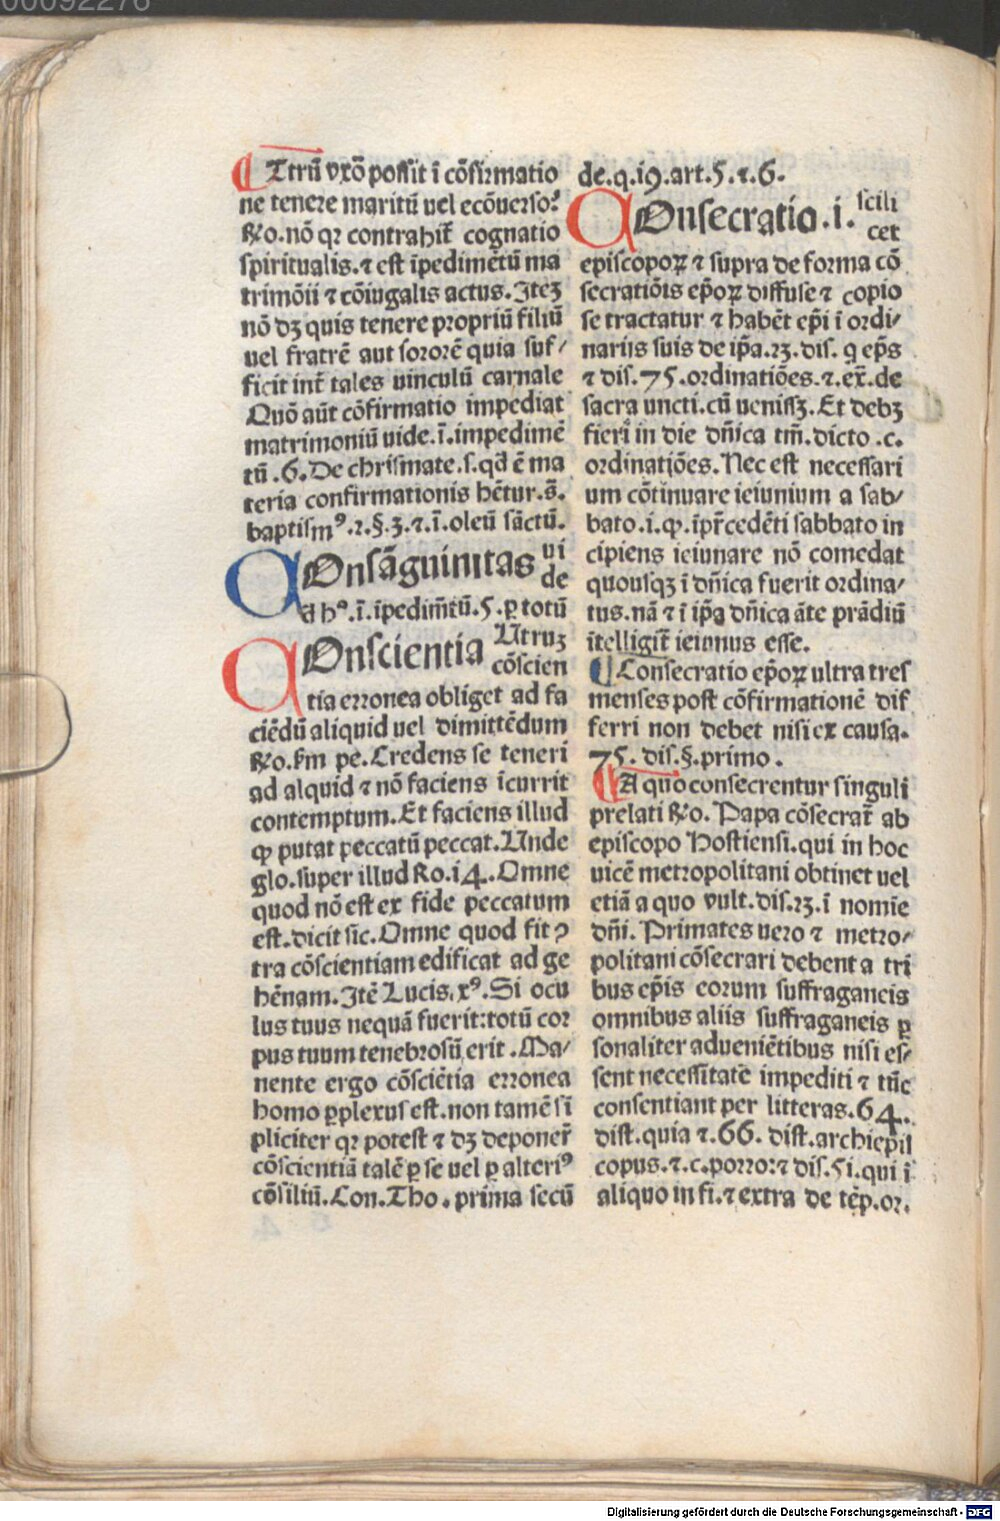 00092276
Utrū vxō possit ī cōfirmatio
ne tenere maritū uel ecōuerso?
Ro. nō qꝛ contrahit̄ cognatio
spiritualis. ⁊ est īpedimētū ma
trimōii ⁊ cōiugalis actus. Iteꝫ
nō dꝫ quis tenere propriū filiū
uel fratrē aut sororē quia suf⸗
ficit int̄ tales uinculū carnale
Quō aūt cōfirmatio impediat
matrimoniū uide .ī. impedimē
tū .6. De chrismate .s. qđ ē ma
teria confirmationis hētur .s̄.
baptismꝰ .2. §. 3. ⁊ .ī. oleū sāctū.
COnsāguinitas ui
de
đ hº .ī. īpedim̄tū .5. ꝑ totū
COnscientia Utruꝫ
cōscien
tia erronea obliget ad fa
ciēdū aliquid uel dimittēdum
Ro. ẜm pe. Credens se teneri
ad alquid ⁊ nō faciens īcurrit
contemptum. Et faciens illud
ꝙ putat peccatū peccat. Unde
glo. super illud Ro. i4. Omne
quod nō est ex fide peccatum
est. dicit sic. Omne quod fit ꝯ
tra cōscientiam edificat ad ge
hēnam. Itē Lucis. xꝰ. Si ocu
lus tuus nequā fuerit: totū cor
pus tuum tenebrosū erit. Ma⸗
nente ergo cōsciētia erronea
homo ꝑplexus est. non tamē si
pliciter qꝛ potest ⁊ dꝫ deponer̄
cōscientiā talē ꝑ se uel ꝑ alteriꝰ
cōsiliū. Con. Tho. prima secū
de. q. i9. art. 5. ⁊. 6.
COnsecratio. i. scili
cet
episcopoꝝ ⁊ supra de forma cō
secratiōis ep̄oꝝ diffuse ⁊ copio
se tractatur ⁊ habēt ep̄i ī ordi⸗
nariis suis de ip̄a. 23. dis. q ep̄s
⁊ dis. 75. ordinatiōes. ⁊. ex̄. de
sacra uncti. cū uenissꝫ. Et debꝫ
fieri in die dn̄ica tm̄. dicto .c.
ordinatiōes. Nec est necessari
um cōtinuare ieiunium a sab⸗
bato. i. ꝙ. īpr̄cedēti sabbato in
cipiens ieiunare nō comedat
quousqꝫ ī dn̄ica fuerit ordina⸗
tus. nā ⁊ ī ip̄a dn̄ica āte prādiū
ītelligit̄ ieiunus esse.
Consecratio ep̄oꝝ ultra tres
menses post cōfirmationē dif
ferri non debet nisi ex causa.
75. dis. §. primo.
A quo consecrentur singuli
prelati Ro. Papa cōsecrat̄ ab
episcopo Hostiensi. qui in hoc
uicē metropolitani obtinet uel
etiā a quo vult. dis. 23. ī nomīe
dn̄i. Primates uero ⁊ metro⸗
politani cōsecrari debent a tri
bus ep̄is eorum suffraganeis
omnibus aliis suffraganeis ꝑ
sonaliter adueniētibus nisi es⸗
sent necessitate impediti ⁊ tūc
consentiant per litteras. 64.
dist. quia ⁊. 66. dist. archiepis
copus. ⁊. c. porro: ⁊ dis. 5i. qui ī
aliquo in fi. ⁊ extra de tēp. or.
Digitalisierung gefördert durch die Deutsche Forschungsgemeinschaft - DFG